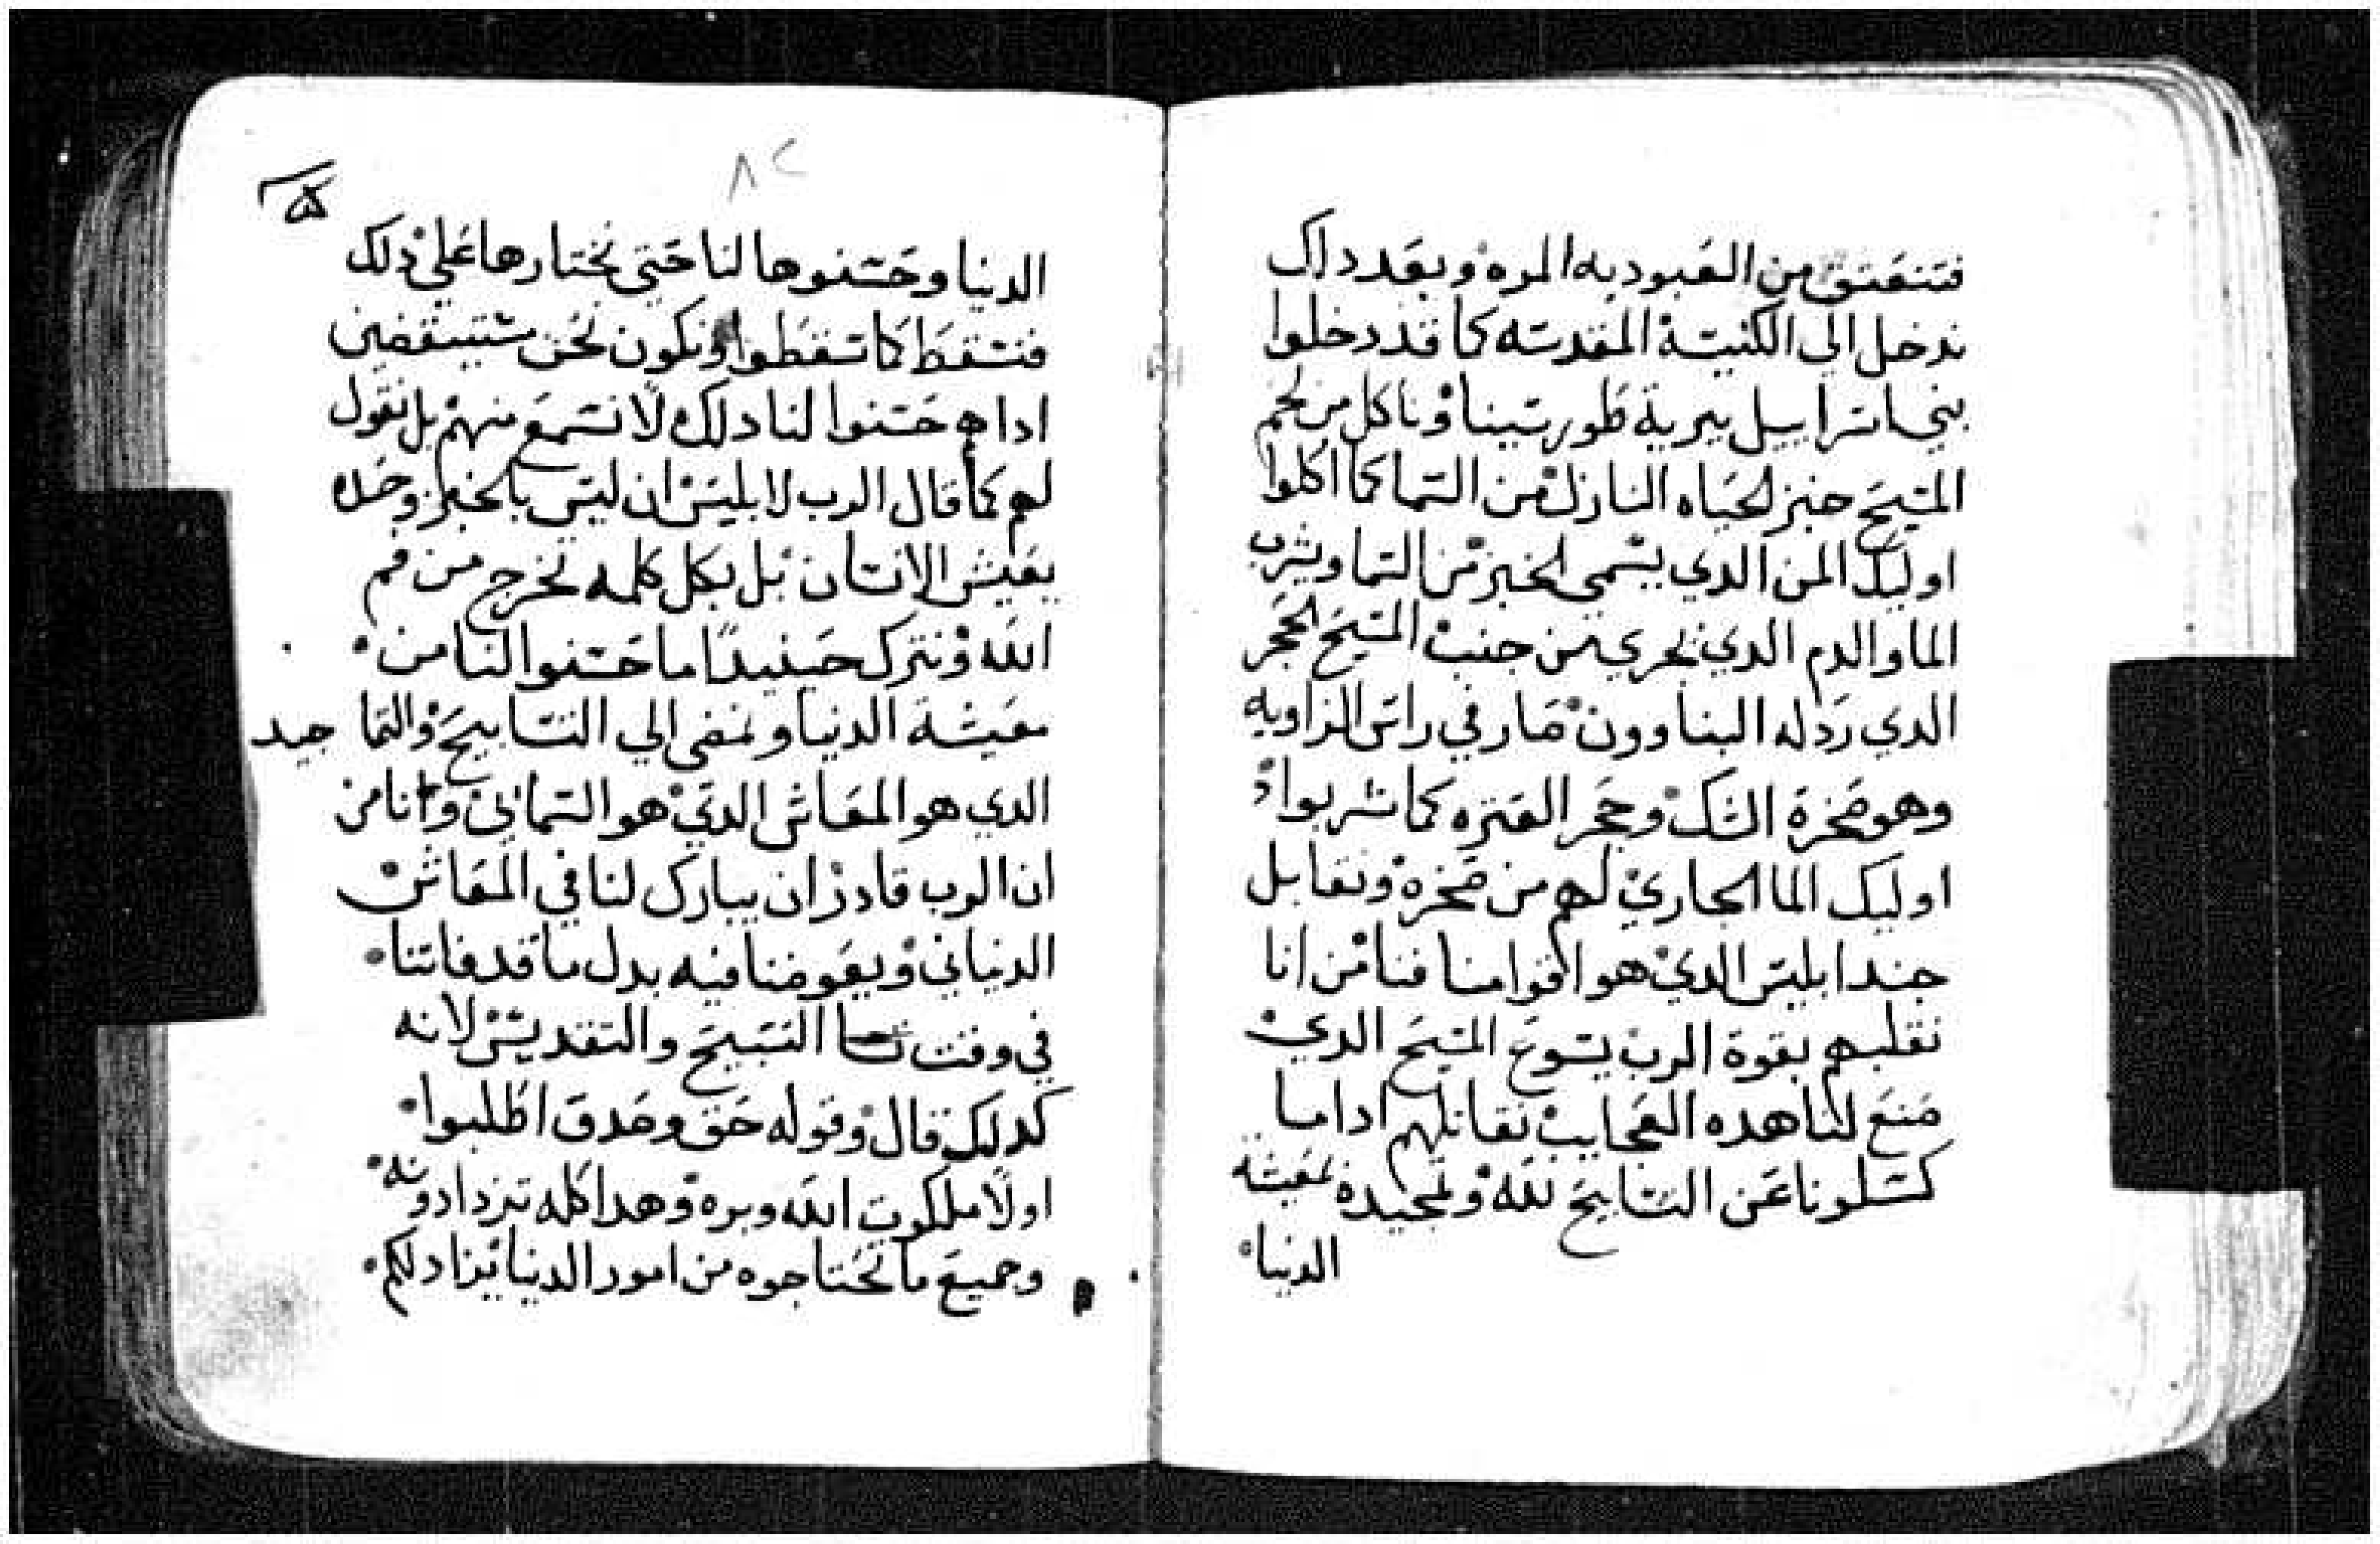 فتنعتق من العبوديه المره وبعد داك
ندخل الي الكنيسة المقدسه كما قد دخلوا
بني اسراييل ببرية طور سينا وناكل من لحم
المسيح خبز الحياه النازل من السما كما اكلوا
اوليك المن الدي يسمي الخبز من السما ويشرب
الما والدم الدي نجري من جنب المسيح الحجر
الدي ردله البناوون صار في راس الزاويه
وهو صخرة الشك وحجر العتره كما شربوا
اوليك الما الجاري لهم من صخره ونقابل
جند ابليس الدي هو اقوا منا فنامن انا
نغلبهم بقوة الرب يسوع المسيح الدي
صنع لنا هده العجايب نقاتلهم ادا ما
كسلونا عن التسابيح لله وتمجيده لمعيشة
الدنيا
٨٢
الدنيا وحسنوها لنا حتي نختارها علي دلك
فنسقط كما سقطوا ونكون نحن مستيقضين
ادا هم حسنوا لنا دلك لا نسمع منهم بل نقول
لهم كما قال الرب لابليس ان ليس بالخبز وحده
يعيش الانسان بل بكل كلمه تخرج من فم
الله ونترك حينيدا ما حسنوا لنا من
معيشة الدنيا ونمضي الي التسابيح والتما جيد
الدي هو المعاش الدي هو السماني وانا من
ان الرب قادر ان يبارك لنا في المعاش
الدنياني ويعوضنا فيه بدل ما قد فاتنا
في وقت التسبيح والتقديس لانه
كدلك قال وقوله حق وصدق اطلبوا
اولا ملكوت الله وبره وهدا كله تزدادونه
وجميع ما تحتاجوه من امور الدنيا يزاد لكم